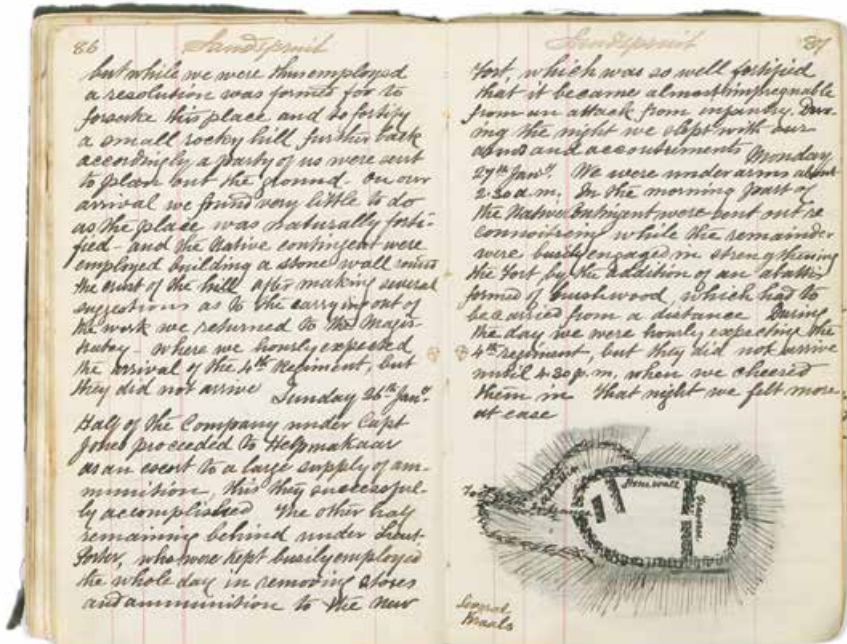 86
Sandspruit
but while we were thus employed
a resolution was formed for to
forsake this place and so fortify
a small rocky hill further back
accordingly a party of us were sent
to plan out the ground - on our
arrival we found very little to do
as the place was naturally forti-
fied - and the Native contingent were
employed building a stone wall round
the crest of the hill after making several
suggestions as to the carrying out of
the work we returned to the Magis-
tracy - where we hourly expected
the arrival of the 4th Regiment, but
they did not arrive Sunday 26th Jany.
Half of the Company under Capt
Jones proceeded to Helpmakaar
as an escort to a large supply of am-
munition, this they successful-
ly accomplished The other half
remaining behind under Lieut
Porter, who were kept busily employed
the whole day in removing stores
and ammunition to the new
Sandspruit
87
Fort, which was so well fortified
that it became almost impregnable
from an attack from infantry. Dur-
ing the night we slept with our
arms and accoutrements Monday
27th Jany. We were under arms about
2.30 a.m. In the morning part of
the Native Contingent were sent out re
connoitring while the remainder
were busily engaged in strengthening
the Fort by the addition of an abattis
formed of brushwood, which had to
be carried from a distance During
the day we were hourly expecting the
4th regiment, but they did not arrive
until 4.30 p.m, when we cheered
them in That night we felt more
at ease
Stone wall
Entrance
Kraals